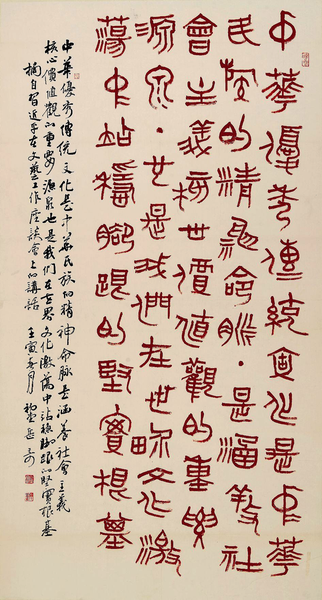 中華優秀傳統文化是中華
民族的精神命脈·是涵養社
會主義核心價值觀的重要
源泉·也是我們在世界文化激
蕩中站穩腳跟的堅實根基
中華優秀傳統文化是中華民族的精神命脈是涵養社會主義
核心價值觀的重要源泉也是我們在世界文化激蕩中站穩腳跟的堅實根基
摘自習近平在文藝工作座談會上的講話 壬寅